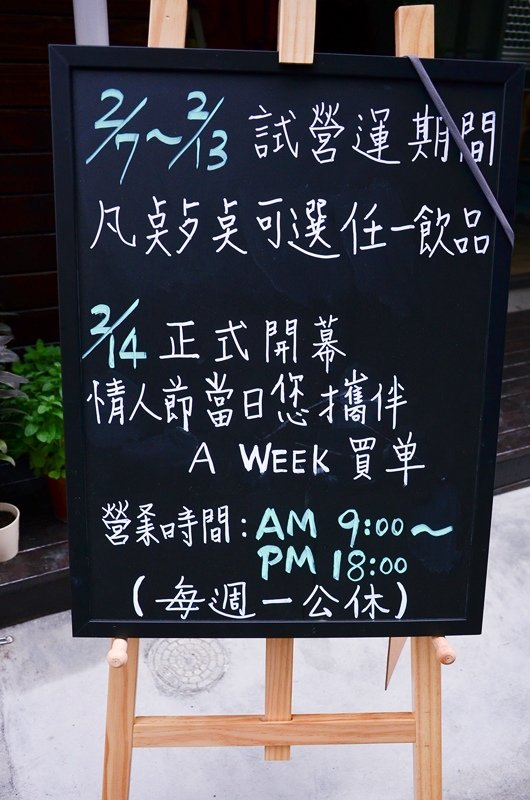 2/7~2/13 試營運期間
凡點餐桌可選任一飲品
2/14 正式開幕
情人節當日您攜伴
A WEEK 買单
營業時間:AM 9:00~
PM 18:00
(每週一公休)